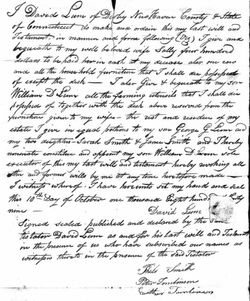 I David Lum of Derby New Haven County & State
of Connecticut do make and ordain this my last will and
Testament, in manner and form following (viz) I give and
bequeath to my well beloved wife Sally four hundred
dollars to be had her in at my decease also one cow
and all the household furniture that I shall die possessed
of except the desk — I also Give & bequeath to my son
William D Lum all the farming utensils that I shall die
possessed of together with the desk above reserved from the
furniture given to my wife — the rest and residue of my
estate I give in equal potions to my son George G Lum and
my two daughters Sarah Smith & Susan Smith and I hereby
nominate constitute and appoint my son William D Lum sole
executor of this my last will and testament hereby revoking all
other and former wills by me at any time heretofore made —
In witness whereof I have hereunto set my hand and seal
this 10th day of October one thousand eight hundred
nine
David Lum
Signed sealed published and declared by the said
testator David Lum as and for his last will and Testament
in the presence of us who have subscribed our names as
witnesses thereto in the presence of the said Testator
Smith
Peter Tomlinson
Tomlinson